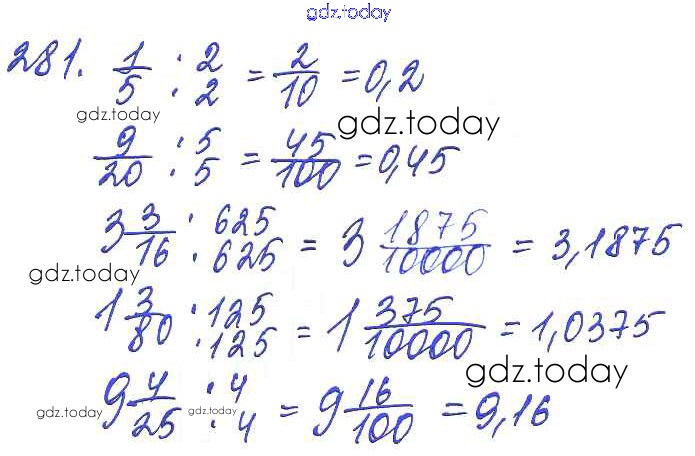 gdz.today
281. 1/5 · 2/· 2 = 2/10 = 0,2
gdz.today
gdz.today
9/20 · 5/· 5 = 45/100 = 0,45
3 3/16 · 625/· 625 = 3 1875/10000 = 3,1875
gdz.today
1 3/80 · 125/· 125 = 1 375/10000 = 1,0375
gdz.today
9 4/25 · 4/· 4 = 9 16/100 = 9,16
gdz.today
gdz.today